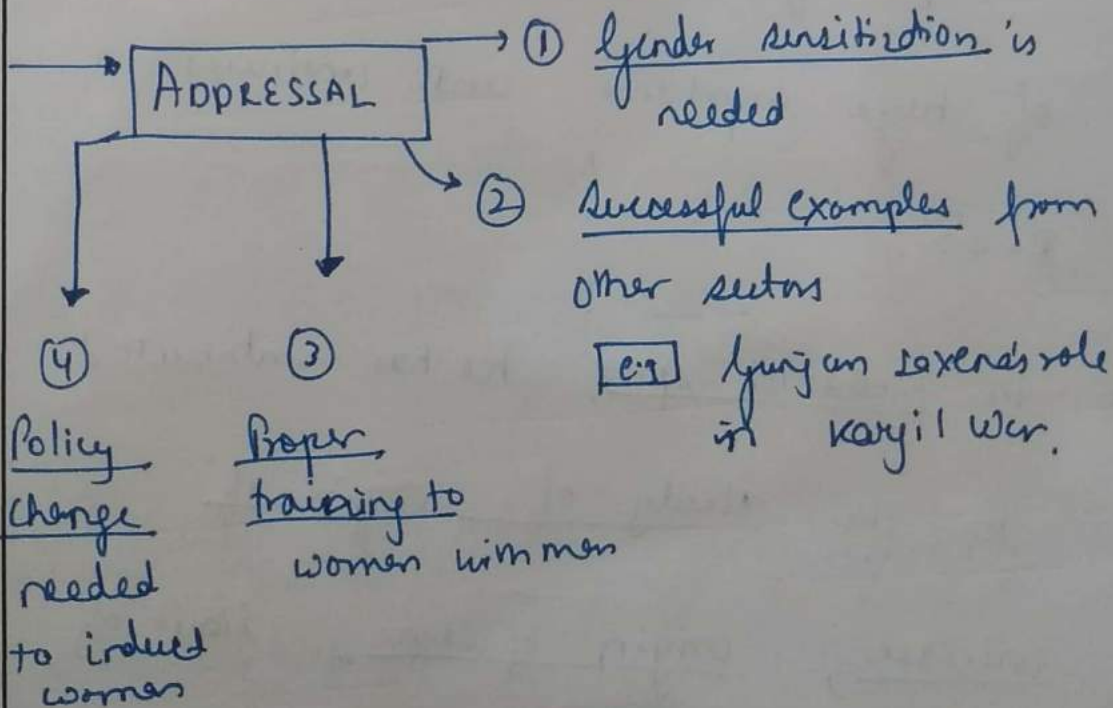 ADDRESSAL
① Gender sensitization is
needed
② Successful examples from
other sectors
e.g Gunjan Saxena's role
in Kargil War.
③
Proper
training to
women with men
④
Policy
change
needed
to induct
women